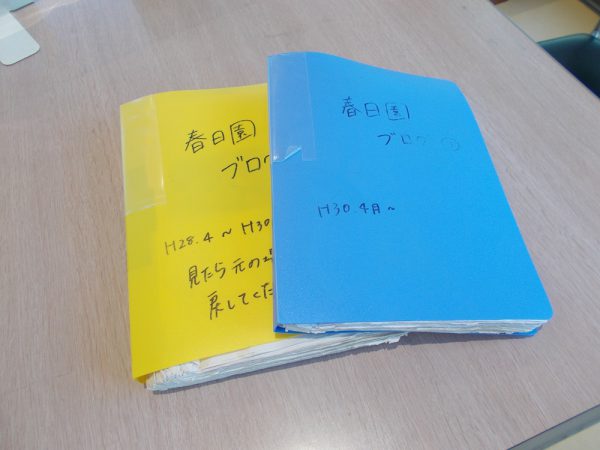 春日園
ブロ
H28.4～H30
見たら元の
戻してくだ
春日園
ブログ
H30.4月～